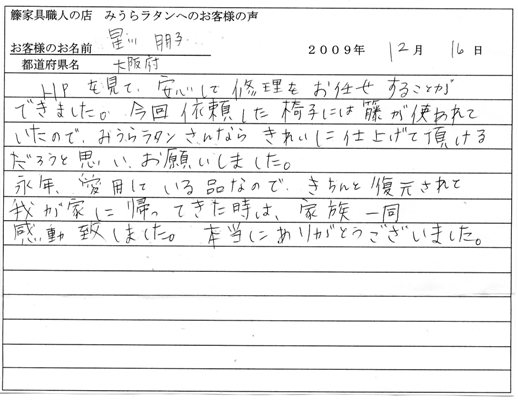 籐家具職人の店　みうらラタンへのお客様の声
お客様のお名前　星川 朋子
2009年 12月 16日
都道府県名　大阪府
HPを見て、安心して修理をお任せすることが
できました。今回依頼した椅子には籐が使われて
いたので、みうらラタンさんなら きれいに仕上げて頂ける
だろうと思い、お願いしました。
永年、愛用している品なので、きちんと復元されて
我が家に帰ってきた時は、家族一同
感動致しました。 本当にありがとうございました。